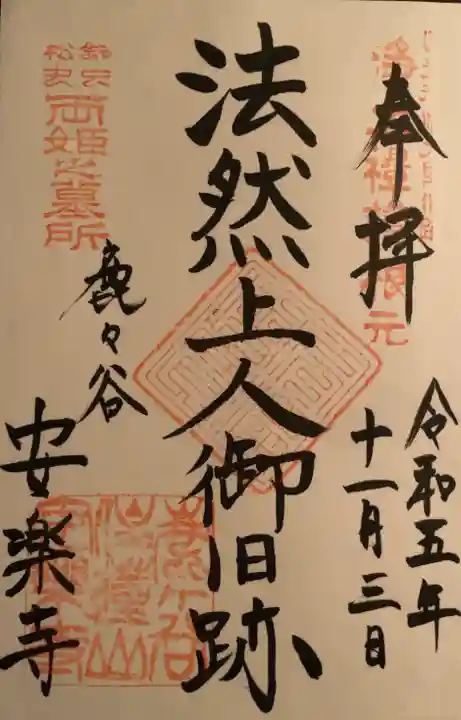 奉拝
令和五年
十一月三日
法然上人御旧跡
鈴虫
松虫
両姫之墓所
鹿々谷
安楽寺